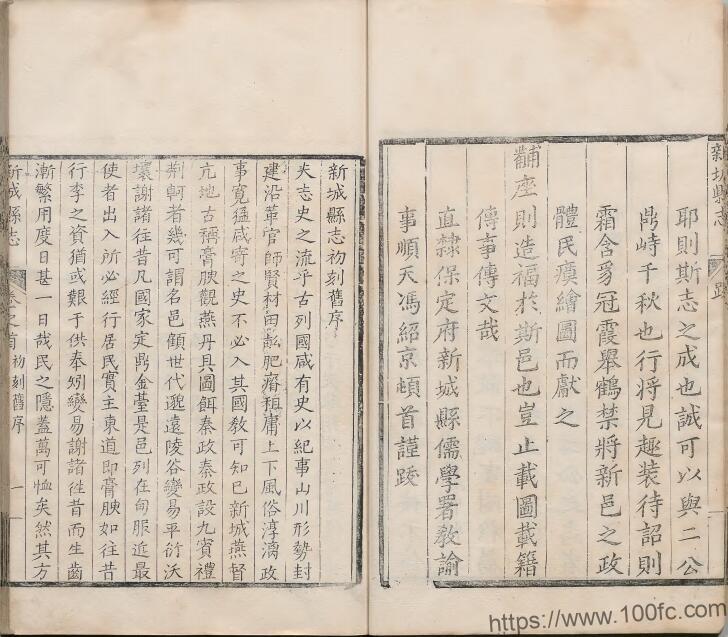 耶則斯志之成也誠可以與二公
鼎峙千秋也行將見趣裝待詔則
霜含豸冠霞舉鶴禁將新邑之政
體民瘼繪圖而獻之
黼座則造福於斯邑也豈止載圖載籍
傳事傳文哉
直隸保定府新城縣儒學署教諭
事順天馮紹京頓首謹跋
新城縣志初刻舊序
夫志史之流乎古列國咸有史以紀事山川形勢封
建沿革官師賢材田賦肥瘠租庸上下風俗淳漓政
事寬猛咸寄之史不必入其國敎可知已新城燕督
亢地古稱膏腴觀燕丹具圖餌秦政秦政設九賓禮
荆軻者幾可謂名邑顧世代邈遠陵谷變易平衍沃
壤謝諸往昔凡國家定鼎金臺是邑列在甸服近最
使者出入所必經行居民實主東道即膏腴如往昔
行李之資猶或艱于供奉矧變易謝諸徃昔而生齒
漸繁用度日甚一日哉民之隱蓋萬可恤矣然其方
新城縣志
卷之首
初刻舊序
一
https://www.100fc.com